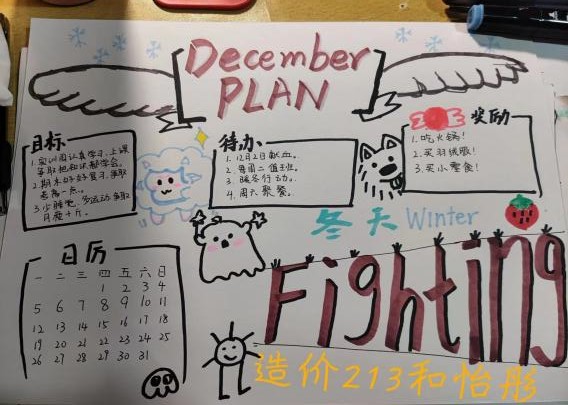 December
PLAN
目标
1. 实训周认真学习、上课
争取把知识都学会。
2. 期末好好复习、争取
考高一点。
3. 少睡觉、多运动争取
月瘦十斤。
待办、
1. 12月2日献血。
2. 每周二值班。
3. 暖冬行动。
4. 周六聚餐。
奖励
1. 吃火锅！
2. 买羽绒服！
3. 买小零食！
冬天 Winter
日历
一 二 三 四 五 六 日
1 2 3 4
5 6 7 8 9 10 11
12 13 14 15 16 17 18
19 20 21 22 23 24 25
26 27 28 29 30 31
Fighting
造价213和怡彤